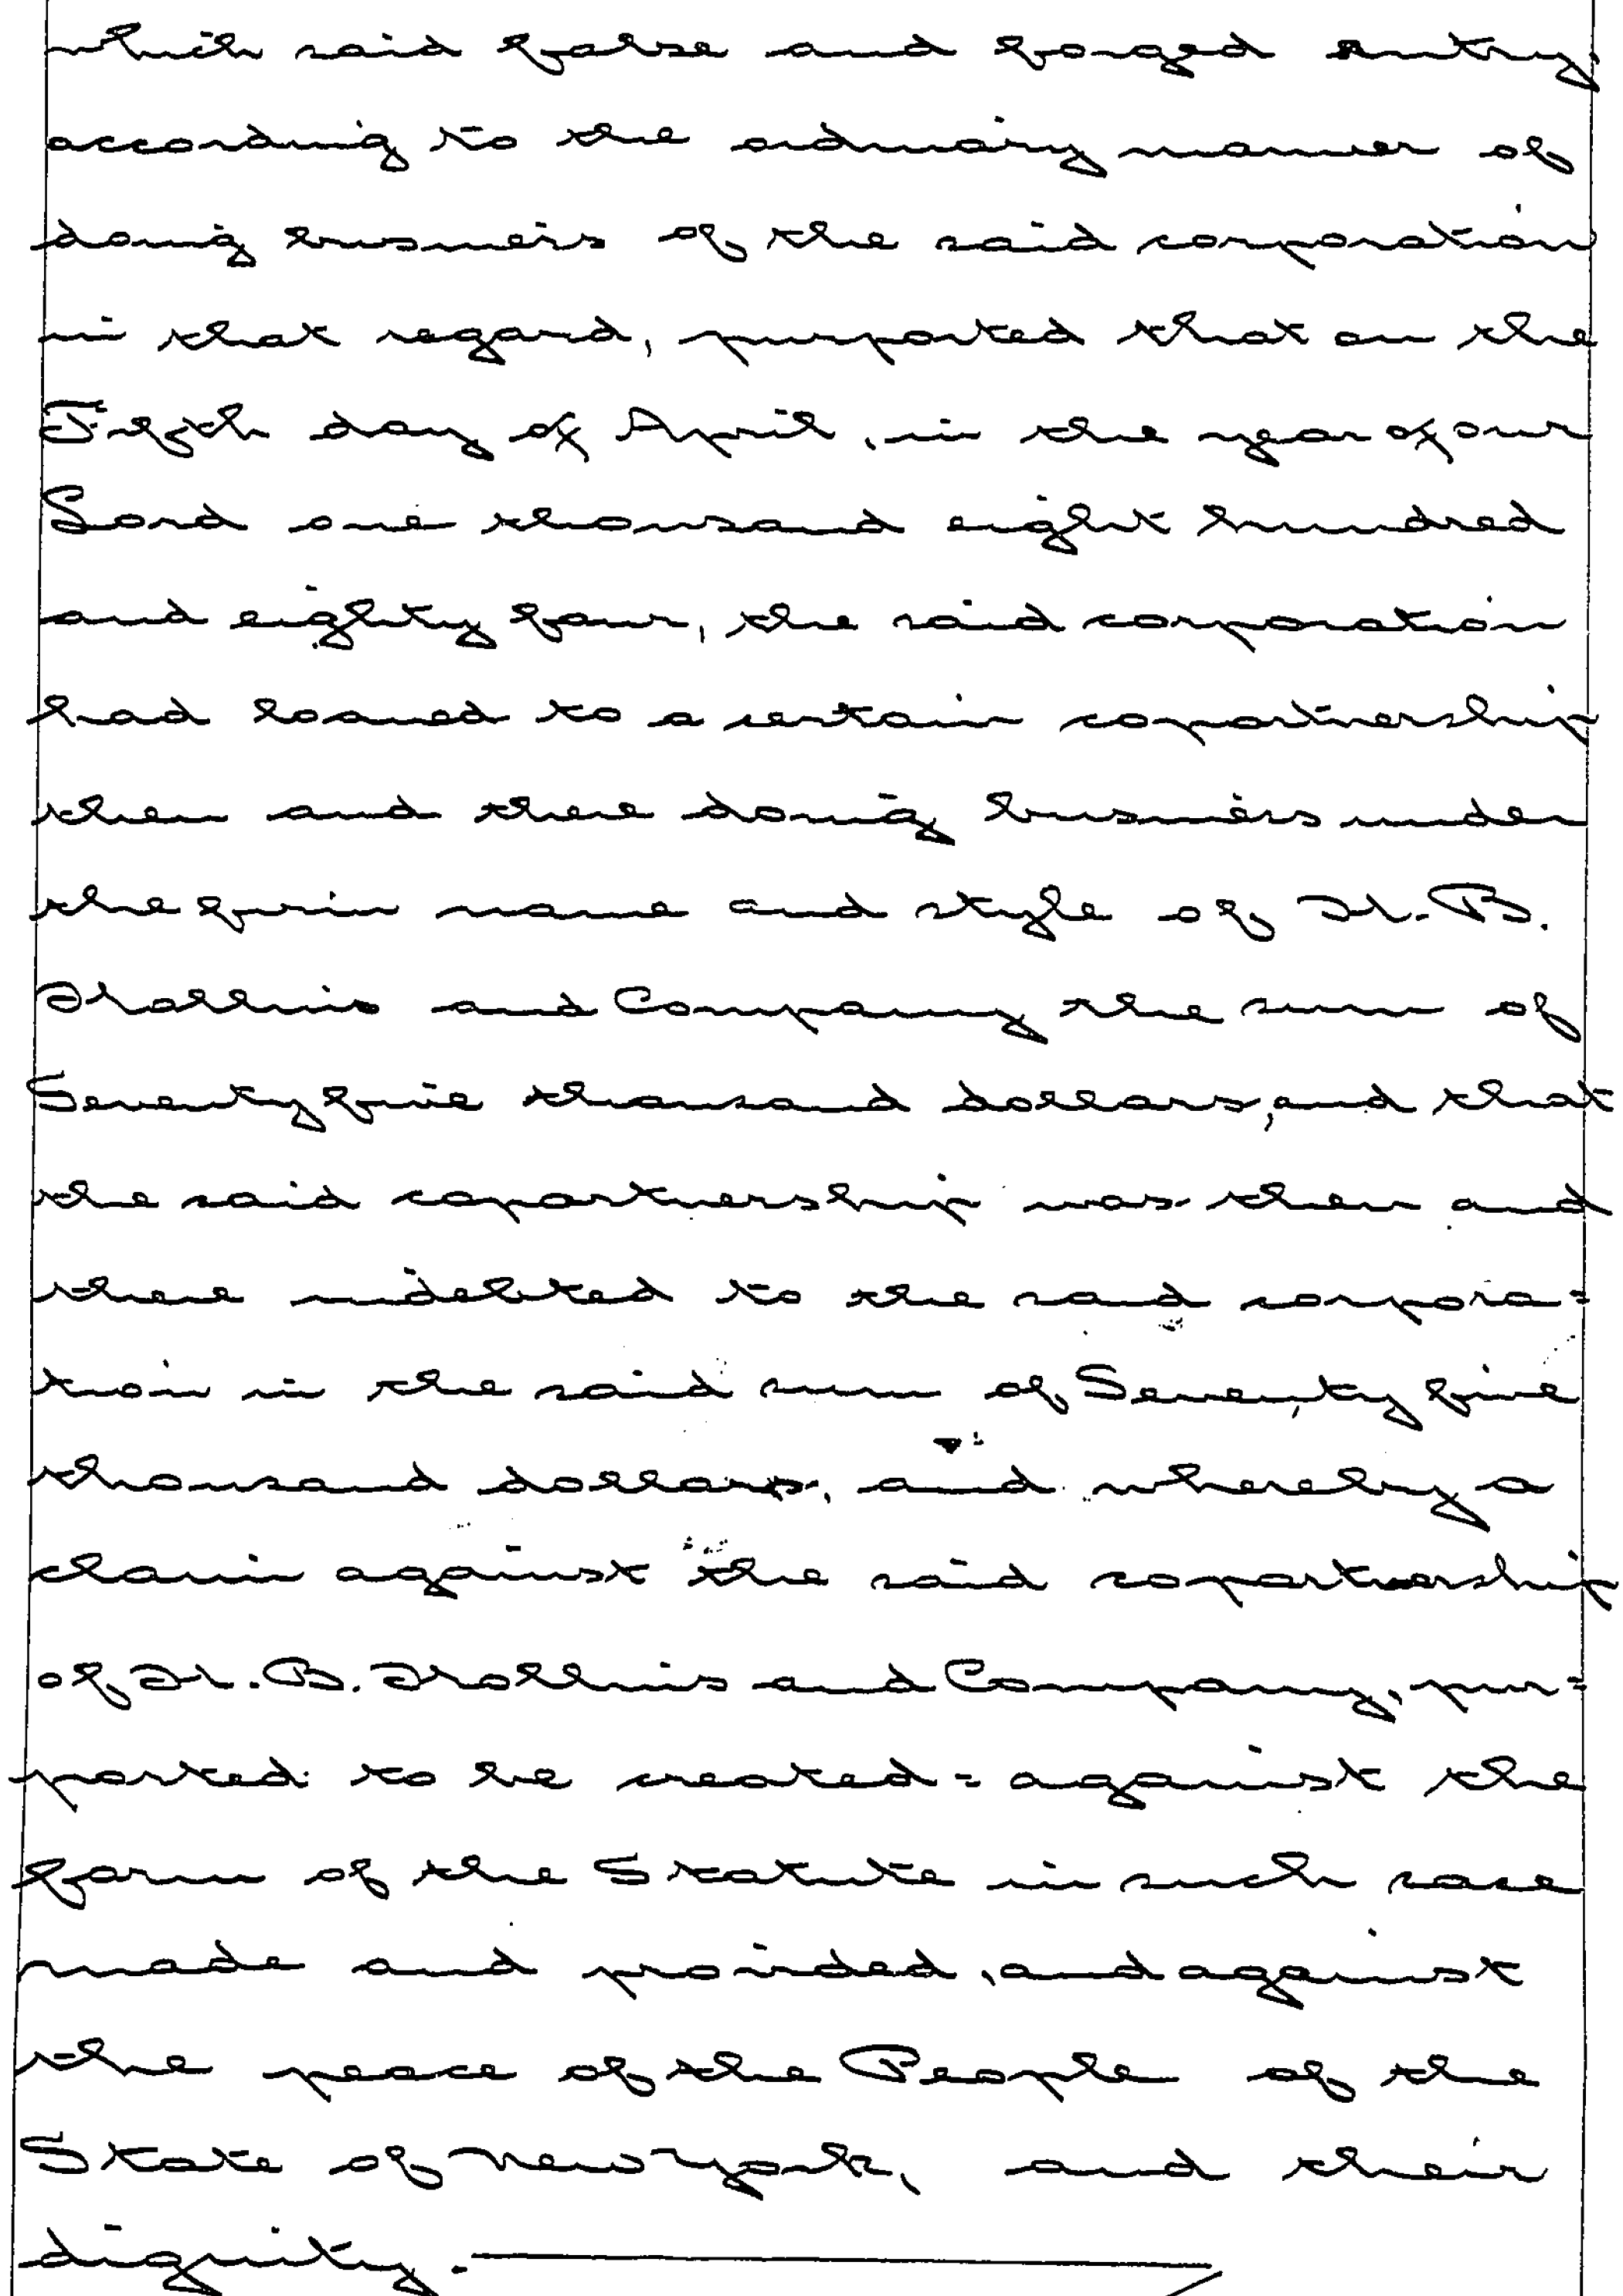 which said false and forged entry,
according to the ordinary manner of
doing business of the said corporation
in that regard, purported that on the
Fifth day of April, in the year of our
Lord one thousand eight hundred
and eighty four, the said corporation
had loaned to a certain copartnership
then and there doing business under
the firm name and style of H. B.
Hollins and Company the sum of
Seventy five thousand dollars, and that
the said copartnership was then and
there indebted to the said corpora=
tion in the said sum of Seventy five
thousand dollars, and whereby a
claim against the said copartnership
of H. B. Hollins and Company, pur=
ported to be created = against the
form of the Statute in such case
made and provided, and against
the peace of the People of the
State of New York, and their
dignity.